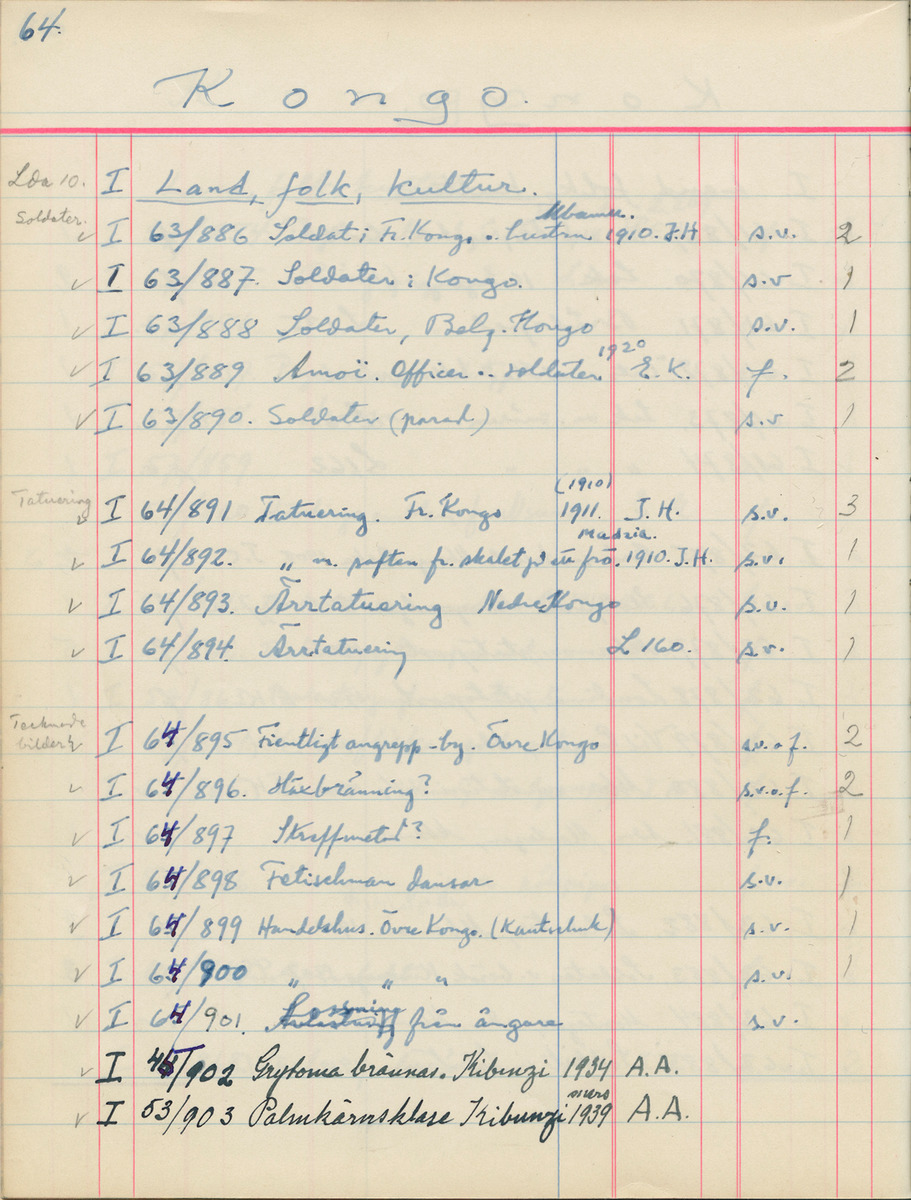 64.
Kongo.
Låda 10. I Land, folk, kultur.
Soldater.
I 63/886 Soldat i Fr. Kongo o. hustru 1910. J.H s.v. 2
I 63/887. Soldater i Kongo. s.v 1
I 63/888 Soldater, Belg. Kongo s.v. 1
1920
I 63/889 Amoï. Officer o. soldater E.K. f. 2
I 63/890. Soldater (parad) s.v 1
(1910)
Tatuering I 64/891 Tatuering. Fr. Kongo 1911. J.H. s.v. 3
Madzia.
I 64/892. " m. saften fr. skalet på ett frö. 1910. J.H. s.v. 1
I 64/893. Ärrtatuering Nedre Kongo s.v. 1
I 64/894. Ärrtatuering L 160. s.v. 1
Tecknade
bilder I 64/895 Fientligt angrepp - by. Övre Kongo s.v. o f. 2
I 64/896. Häxbränning? s.v. o. f. 2
I 64/897 ? f. 1
I 64/898 Fetischman dansar s.v. 1
I 64/899 Handelshus. Övre Kongo. (Kautschuk) s.v. 1
I 64/900 " " " s.v. 1
I 64/901. Lossning från ångare s.v.
I /902 Grytorna brännas. Kibunzi 1934 A.A.
I 53/903 Palmkärnsklase Kibunzi 1939 A.A.